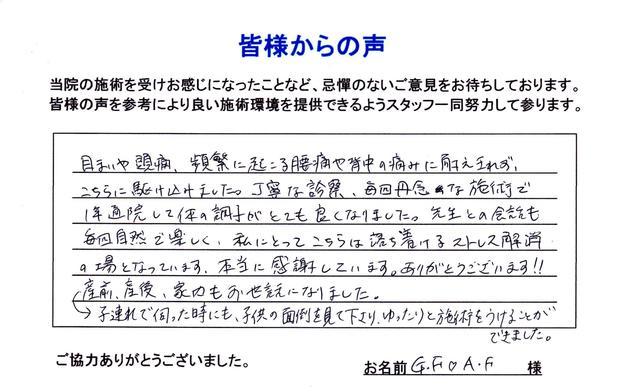 皆様からの声
当院の施術を受けお感じになったことなど、忌憚のないご意見をお待ちしております。
皆様の声を参考により良い施術環境を提供できるようスタッフ一同努力して参ります。
目まいや頭痛、頻繁に起こる腰痛や背中の痛みに耐えきれず、
こちらに駆け込けました。丁寧な診察、毎回丹念な施術で
1年通院して体の調子がとても良くなりました。先生との会話も
毎回自然で楽しく、私にとってこちらは落ち着けるストレス解消
の場となっています、本当に感謝しています。ありがとうございます!!
産前、産後、家内もお世話になりました。
→子連れで伺った時にも、子供の面倒を見て下さり、ゆったりと施術をうけることが
できました。
ご協力ありがとうございました。
お名前 G.F♡A.F 様